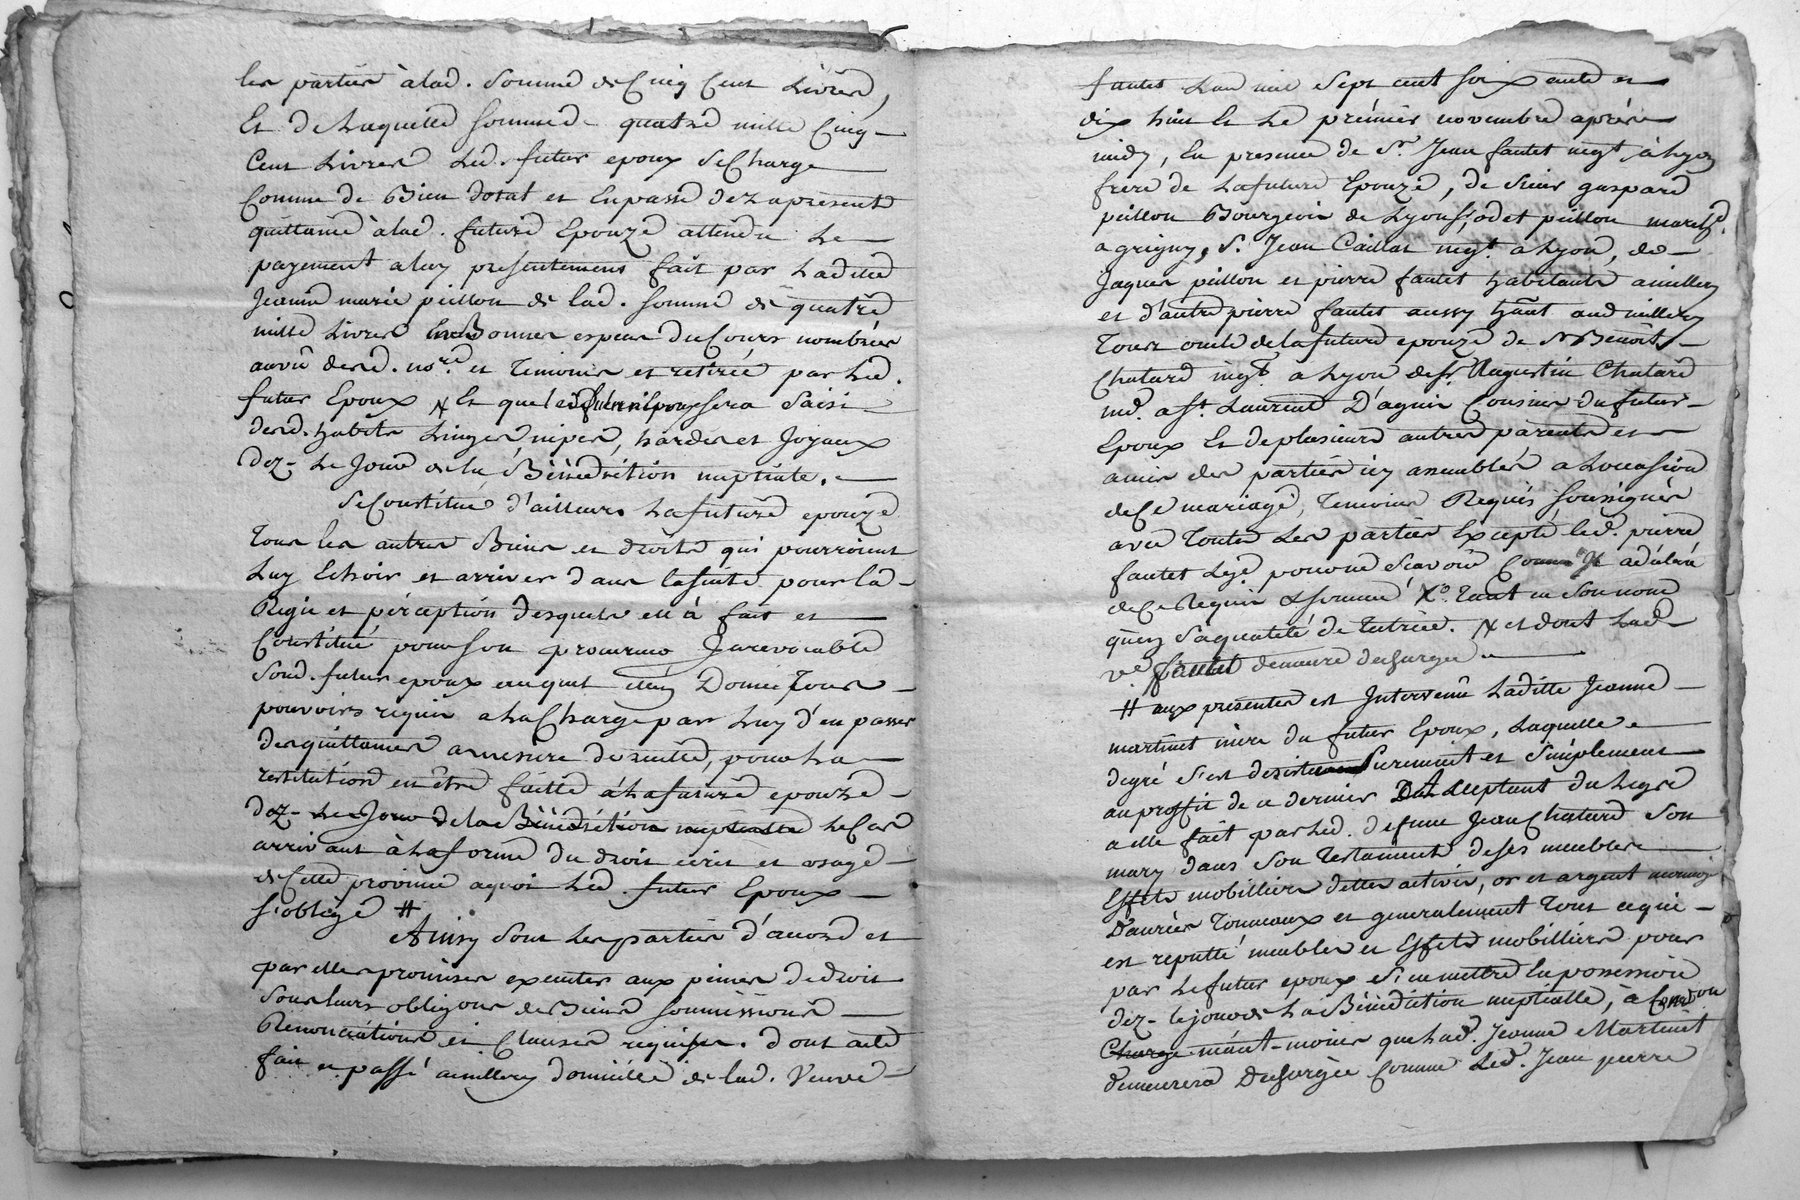 les parties à lad. Somme de Cinq Cent Livres,
Et de Laquelle Somme de quatre mille Cinq
Cent Livres Led. futur epoux Se Charge
Comme de Bien dotal et En passe dez apresent
quittance à lad. future Epouze attendu Le
payement aluy presentement fait par Laditte
Jeanne marie peillon de lad. Somme de quatre
mille Livres En Bonnes espece du Cours nombrées
au vû desd. nores et Temoins et retirée par Led.
futur Epoux Et que led. futur Epoux sera Saisi
desd. habits Linges, nipes, hardes et Joyaux
dez Le Jour de la Bénédiction nuptiale.
Se Constitue d'ailleurs La future epouze
Tous les autres Biens et droits qui pourroient
Luy Echoir et arriver dans la suite pour la
Regie et pérception desquels elle à fait et
Constitué pour son procureur Jrrevocable
Sond. futur epoux auquel elle Donne Tous
pouvoirs requis a La Charge par Luy d'en passer
des quittances a mesure de recette, pour La
restitution en être faitte à La future epouze
dez Le Jour de la Bénédiction nuptialle Le Cas
arrivant à La forme du droit écrit et usage
de Cette province aquoi Led. futur Epoux
s'oblige #
Ainsy Sont Les parties d'accord et
par elles promises executer aux peines de droit
Sous leurs obligons de Biens Soumissions
Renonciations et Clauses requises. dont acte
fait et passé a millery domicille de lad. Veuve
fautet L'an mil Sept cent soixante et
dix huit Et Le prémier novembre après
midy, En presence de Sr. Jean fautet negt. à Lyon
frere de La future Epouze, de Sieur gaspard
peillon Bourgeois de Lyon, peillon march.
a grigny, Sr. Jean Caillat negt. a Lyon, de
Jaques peillon et pierre fautet habitants a millery
et d'autre pierre fautet aussy hant aud millery
Tous oncle de la future epouze de Sr Benoit
Chatard negt. a Lyon de Sr. Augustin Chatard
md. a St. Laurent D'agnin Cousins du futur
Epoux Et de plusieurs autres parents et
amis des parties icy assemblés a L'occasion
de Ce mariage, Temoins Requis Soussignés
avec Toutes Les parties Excepté led. pierre
fautet Leq. pour ne Scavoir Comme Il a déclaré
de Ce Requis & Sommé Tant en Son nom
qu'en Sa qualité de Tutrice. et dont Lad.
ve fautet demeure dechargée
# aux presentes est Intervenüe Laditte Jeanne
martinet mere du futur Epoux, Laquelle
de gré S'est desistée Purement et Simplement
au proffit de ce dernier acceptant du Legs
a elle fait par Led. defunt Jean Chatard Son
mary dans Son Testament de Ses meubles
Effets mobilliers dettes actives, or et argent monoyé
Danrées Tonneaux et generalement Tout ce qui
est reputté meubles et Effets mobilliers pour
par Le futur epoux S'en mettre En possession
dez le jour de La Bénédiction nuptialle, à
Charge neant-moins que Lad. Jeanne Martinet
demeurera Dechargée Comme Led. Jean pierre